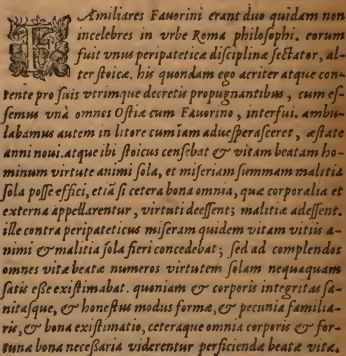 FAmiliares Fauorini erant duo quidam non
incelebres in vrbe Roma philosophi. eorum
fuit vnus peripateticæ disciplinæ sectator, al-
ter stoicæ. his quondam ego acriter atque con-
tente pro suis vtrimque decretis propugnantibus, cum es-
semus vnà omnes Ostiæ cum Fauorino, interfui. ambu-
labamus autem in litore cum iam aduesperasceret, æstate
anni noui. atque ibi stoicus censebat & vitam beatam ho-
minum virtute animi sola, et miseriam summam malitia
sola posse effici, etiā si cetera bona omnia, quæ corporalia et
externa appellarentur, virtuti deessent; malitiæ adessent.
ille contra peripateticus miseram quidem vitam vitiis a-
nimi & malitia sola fieri concedebat; sed ad complendos
omnes vitæ beatæ numeros virtutem solam nequaquam
satis esse existimabat. quoniam & corporis integritas sa-
nitasque, & honestus modus formæ, & pecunia familia-
ris, & bona existimatio, ceteraque omnia corporis & for-
tunæ bona necessaria viderentur perficiendæ beatæ vitæ.